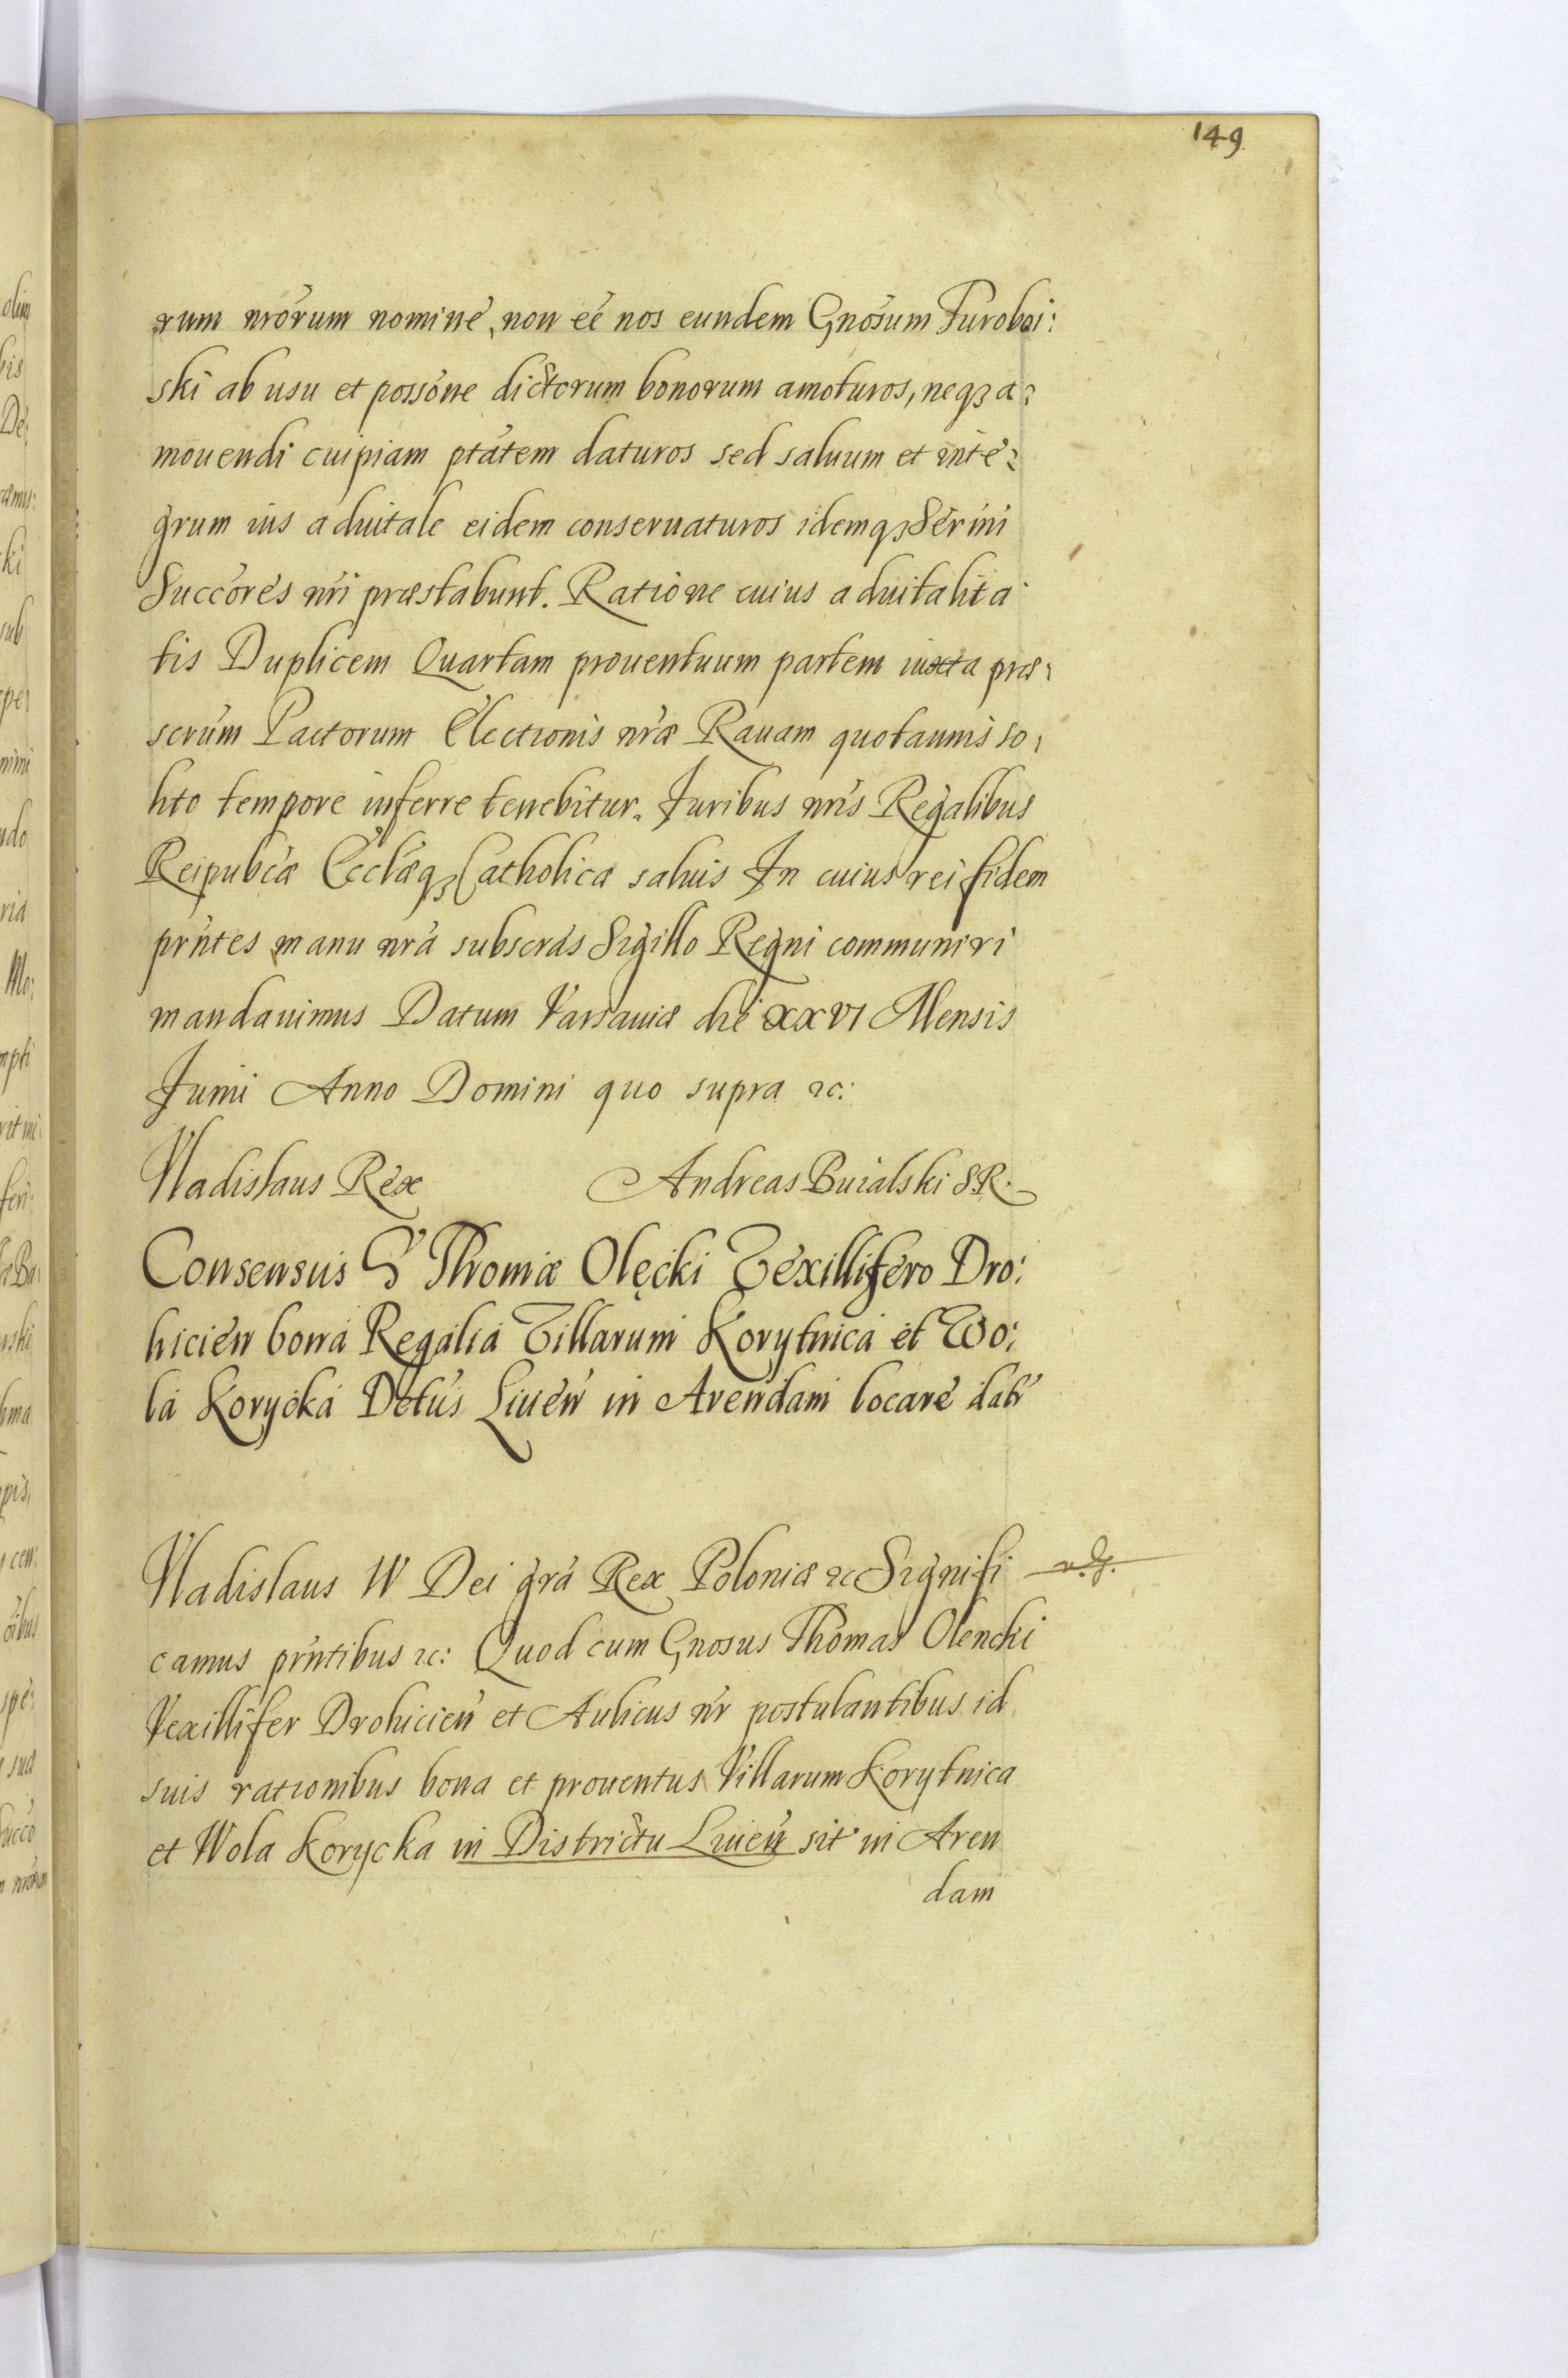 149
rum nrórum nomine, non eé nos eundem Gnósum Turoboi:
ski ab usu et possóne dictorum bonorum amoturos, neqз a:
mouendi cuipiam ptátem daturos sed saluum et inte:
grum ius aduitale eidem conseruaturos idemqз Sérini
Succóres nri præstabunt. Ratione cuius aduitalita
tis Duplicem Quartam prouentuum partem iuxta præ:
scrúm Pactorum Electionis nræ Rauam quotannis so:
lito tempore inferre tenebitur. Juribus nris Regalibus
Reipubcæ Ecclæqз Catholicæ saluis In cuius rei fidem
prntes manu nrá subscrás Sigillo Regni communiri
mandauimus Datum Varsauiæ die XXVI Mensis
Junii Anno Domini quo supra &c:
Vladislaus Rex Andreas Buialski SR.
Consensus G Thomæ Olęcki Vexillifero Dro:
hicień bona Regalia Villarum Korytnica et Wo:
la Korycka Dctus Liueń in Arendam locare datr
Vladislaus IV Dei grá Rex Poloniæ &c Signifi
camus prntibus &c: Quod cum Gnosus Thomas Olencki
Vexillifer Drohicień et Aulicus nr postulantibus id
suis rationibus bona et prouentus Villarum Korytnica
et Wola Korycka in Districtu Liuień sit in Aren
dam